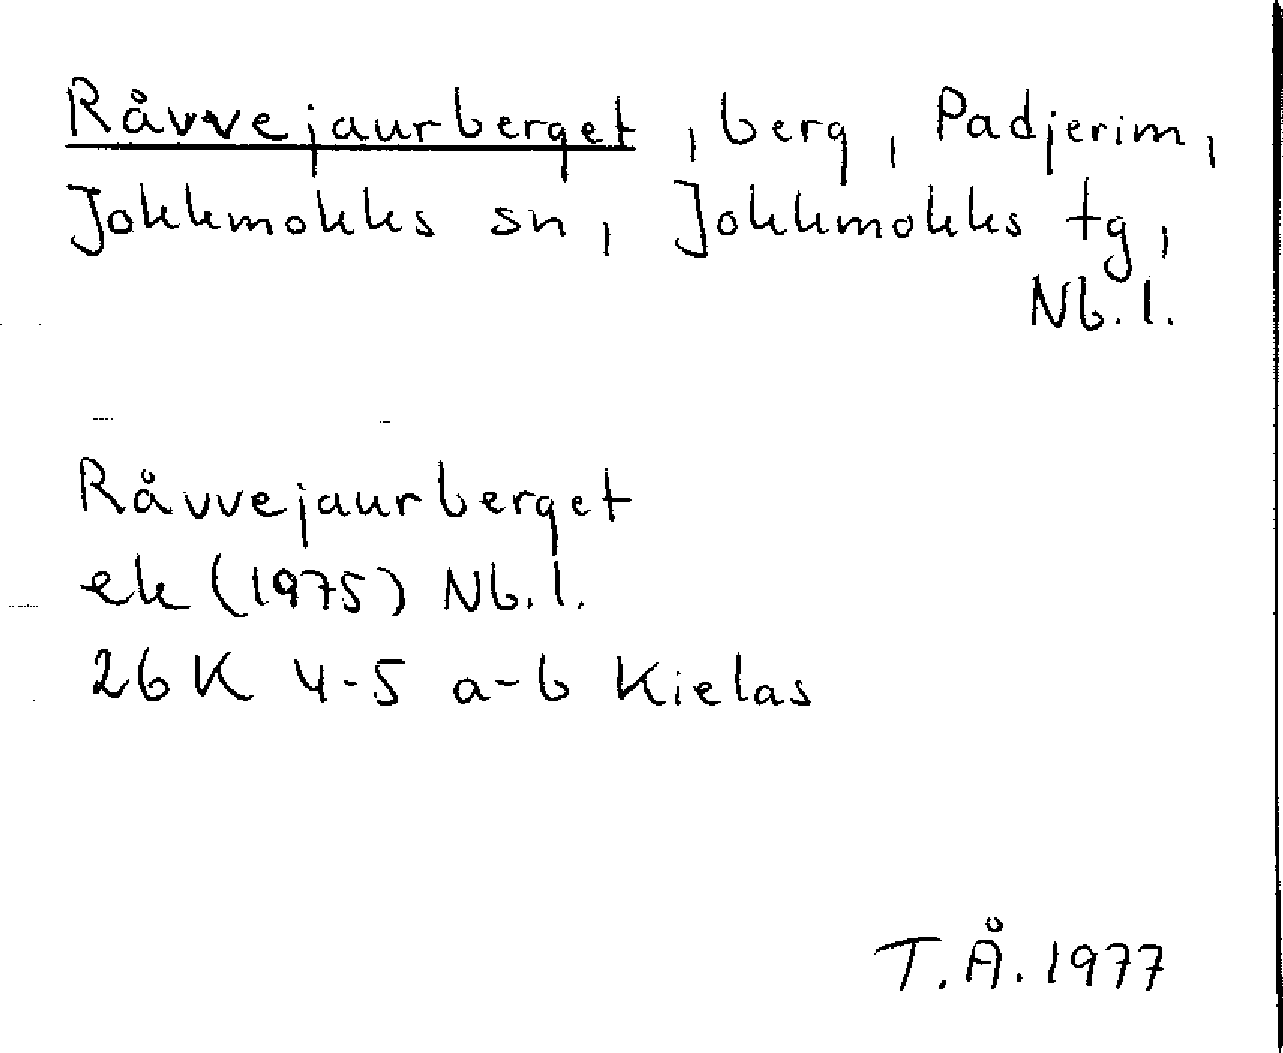 Råvvejaurberget, berg, Padjerim,
Jokkmokks sn, Jokkmokks tg,
Nb.l.
Råvvejaurberget
ek (1975) Nb.l.
26K 4-5 a-b Kielas
T.Å. 1977